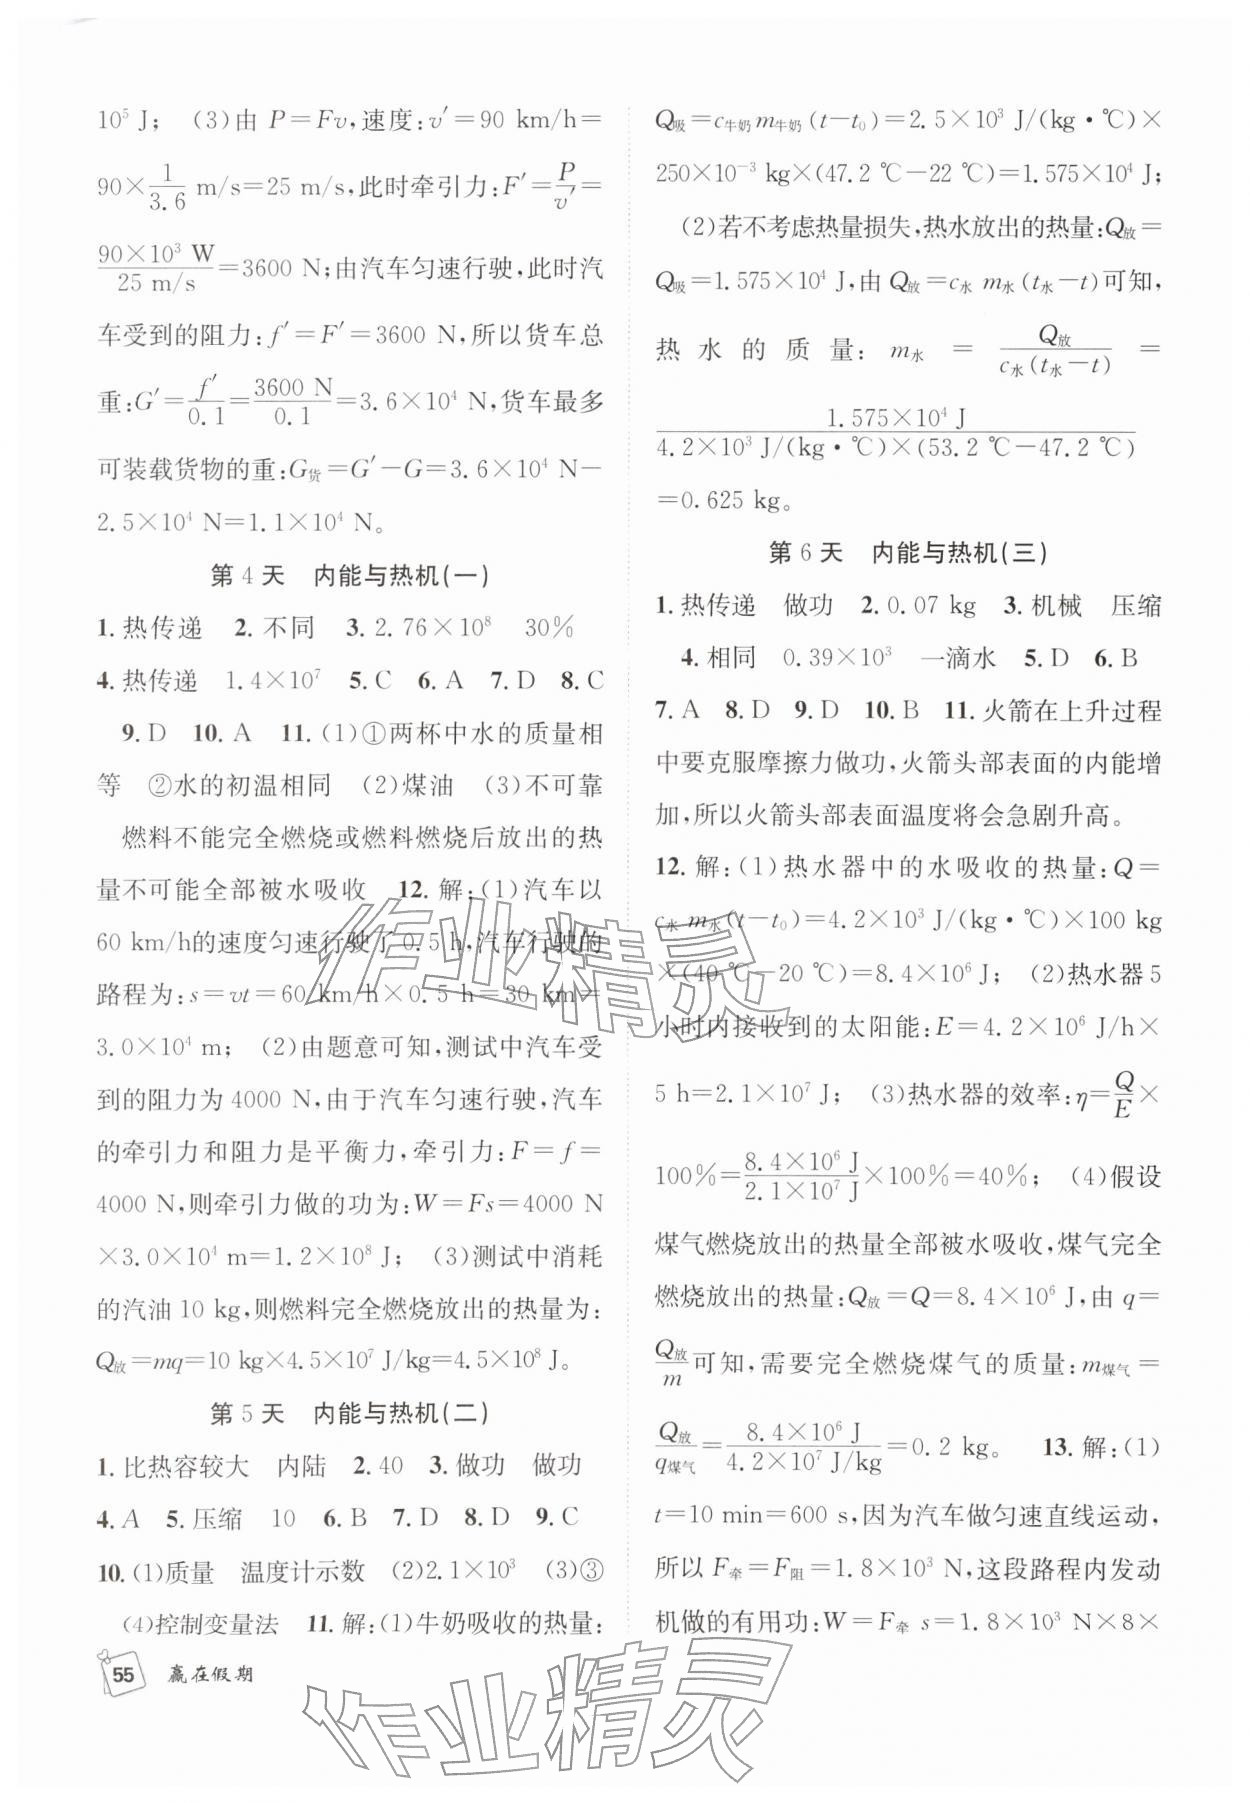 10⁵ J; (3)由 P=Fv,速度:v′=90 km/h=
90×1/3.6 m/s=25 m/s,此时牵引力:F′=P/v′=
90×10³ W/25 m/s=3600 N;由汽车匀速行驶,此时汽
车受到的阻力:f′=F′=3600 N,所以货车总
重:G′=f′/0.1=3600 N/0.1=3.6×10⁴ N,货车最多
可装载货物的重:G货=G′-G=3.6×10⁴ N-
2.5×10⁴ N=1.1×10⁴ N。
第4天 内能与热机(一)
1.热传递 2.不同 3.2.76×10⁸ 30%
4.热传递 1.4×10⁷ 5.C 6.A 7.D 8.C
9.D 10.A 11.(1)①两杯中水的质量相
等 ②水的初温相同 (2)煤油 (3)不可靠
燃料不能完全燃烧或燃料燃烧后放出的热
量不可能全部被水吸收 12.解:(1)汽车以
60 km/h的速度匀速行驶了0.5 h,汽车行驶的
路程为:s=vt=60 km/h×0.5 h=30 km=
3.0×10⁴ m; (2)由题意可知,测试中汽车受
到的阻力为4000 N,由于汽车匀速行驶,汽车
的牵引力和阻力是平衡力,牵引力:F=f=
4000 N,则牵引力做的功为:W=Fs=4000 N
×3.0×10⁴ m=1.2×10⁸ J; (3)测试中消耗
的汽油10 kg,则燃料完全燃烧放出的热量为:
Q放=mq=10 kg×4.5×10⁷ J/kg=4.5×10⁸ J。
第5天 内能与热机(二)
1.比热容较大 内陆 2.40 3.做功 做功
4.A 5.压缩 10 6.B 7.D 8.D 9.C
10.(1)质量 温度计示数 (2)2.1×10³ (3)③
(4)控制变量法 11.解:(1)牛奶吸收的热量:
55 赢在假期
Q吸=c牛奶m牛奶(t-t₀)=2.5×10³ J/(kg·℃)×
250×10⁻³ kg×(47.2 ℃-22 ℃)=1.575×10⁴ J;
(2)若不考虑热量损失,热水放出的热量:Q放=
Q吸=1.575×10⁴ J,由Q放=c水 m水(t水-t)可知,
热水的质量: m水 = Q放/c水(t水-t) =
1.575×10⁴ J/4.2×10³ J/(kg·℃)×(53.2 ℃-47.2 ℃)
=0.625 kg。
第6天 内能与热机(三)
1.热传递 做功 2.0.07 kg 3.机械 压缩
4.相同 0.39×10³ 一滴水 5.D 6.B
7.A 8.D 9.D 10.B 11.火箭在上升过程
中要克服摩擦力做功,火箭头部表面的内能增
加,所以火箭头部表面温度将会急剧升高。
12.解:(1)热水器中的水吸收的热量:Q=
c水 m水(t-t₀)=4.2×10³ J/(kg·℃)×100 kg
×(40 ℃-20 ℃)=8.4×10⁶ J; (2)热水器5
小时内接收到的太阳能:E=4.2×10⁶ J/h×
5 h=2.1×10⁷ J; (3)热水器的效率:η=Q/E×
100%=8.4×10⁶ J/2.1×10⁷ J×100%=40%; (4)假设
煤气燃烧放出的热量全部被水吸收,煤气完全
燃烧放出的热量:Q放=Q=8.4×10⁶ J,由q=
Q放/m可知,需要完全燃烧煤气的质量:m煤气=
Q放/q煤气=8.4×10⁶ J/4.2×10⁷ J/kg=0.2 kg。 13.解:(1)
t=10 min=600 s,因为汽车做匀速直线运动,
所以F牵=F阻=1.8×10³ N,这段路程内发动
机做的有用功:W=F牵 s=1.8×10³ N×8×
作业精灵
作业精灵